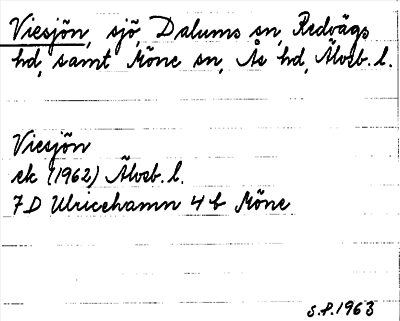 Viesjön, sjö, Dalums sn, Redvägs
hd, samt Möne sn, Ås hd, Älvsb. l.
Viesjön
ek (1962) Älvsb. l.
7D Ulricehamn 4 b Möne
S.P. 1963